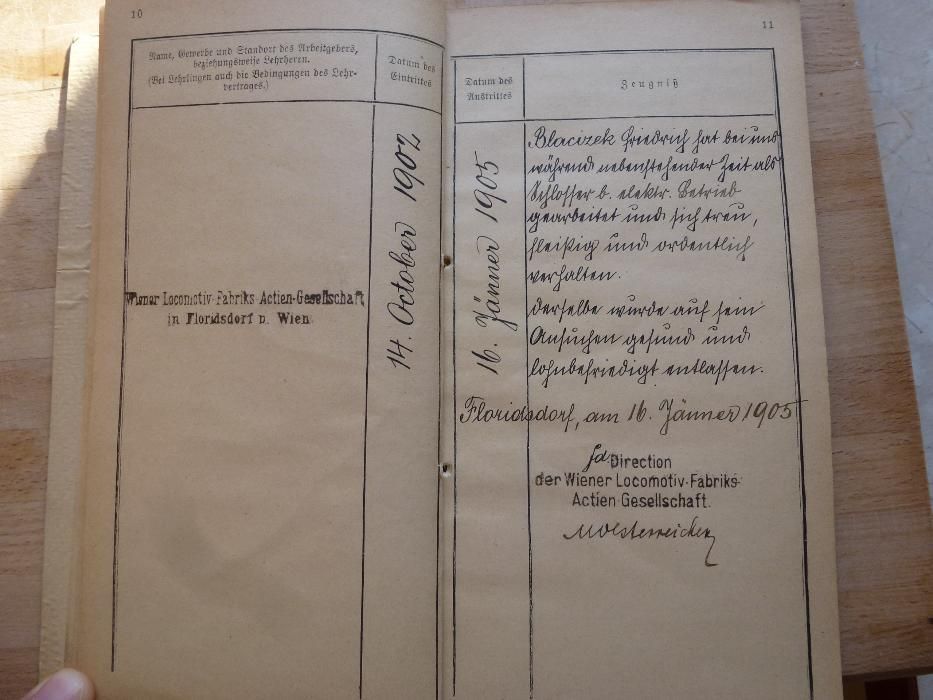 10
Name, Gewerbe und Standort des Arbeitgebers,
beziehungsweise Lehrherrn.
(Bei Lehrlingen auch die Bedingungen des Lehr-
vertrages.)
Datum des
Eintrittes
Wiener Locomotiv-Fabriks-Actien-Gesellschaft
in Floridsdorf b. Wien.
14. October 1902
11
Datum des
Austrittes
Zeugniß
16. Jänner 1905
Blacizek Friedrich hat bei uns
während nebenstehender Zeit als
Schlosser b. elektr. Betrieb
gearbeitet und sich treu,
fleißig und ordentlich
verhalten.
Derselbe wurde auf sein
Ansuchen gesund und
lohnbefriedigt entlassen.
Floridsdorf, am 16. Jänner 1905
Direction
der Wiener Locomotiv-Fabriks-
Actien-Gesellschaft.